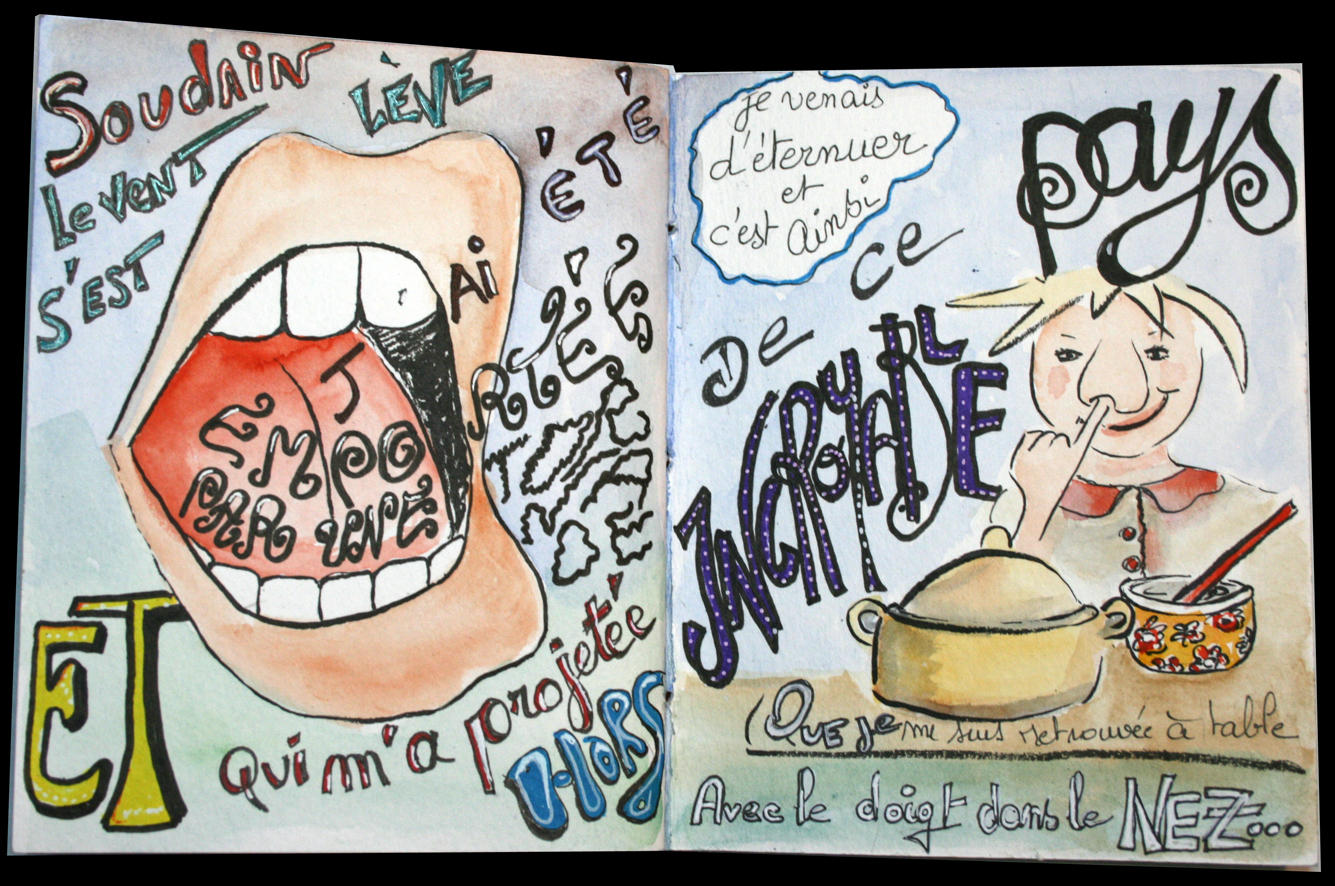 Soudain
le vent
s'EST
LÈVE
ET
J'Ai
ÉTÉ
EMPORTÉE
PAR UNE
Qui m'a projetée
HORS
De ce
INCROYABLE
pays
je venais
d'éternuer
et
c'est Ainsi
(Que je me suis retrouvée à table
Avec le doigt dans le NEZ...